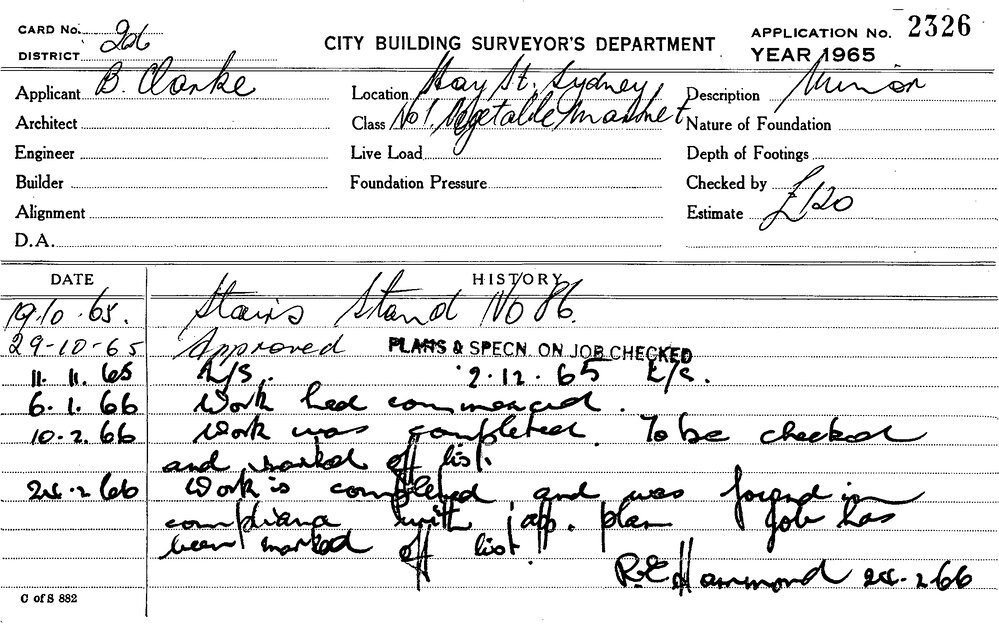 CARD No. 226
DISTRICT
CITY BUILDING SURVEYOR'S DEPARTMENT
APPLICATION No. 2326
YEAR 1965
Applicant B. Clarke
Location Hay St. Sydney
Description Minor
Architect
Class No 1. Vegetable Market
Nature of Foundation
Engineer
Live Load
Depth of Footings
Builder
Foundation Pressure
Checked by
Alignment
Estimate £120
D.A.
DATE HISTORY
19.10.65. Stairs Stand No 86.
29-10-65 Approved PLANS & SPECN. ON JOB CHECKED
11.11.65 L/S. 2.12.65 L/S.
6.1.66 Work had commenced.
10.2.66 Work was completed. To be checked
and marked off list.
24.2.66 Work is completed and was found in
compliance with app. plan job has
been marked off list.
R.E. Hammond 24.2.66
C of S 882